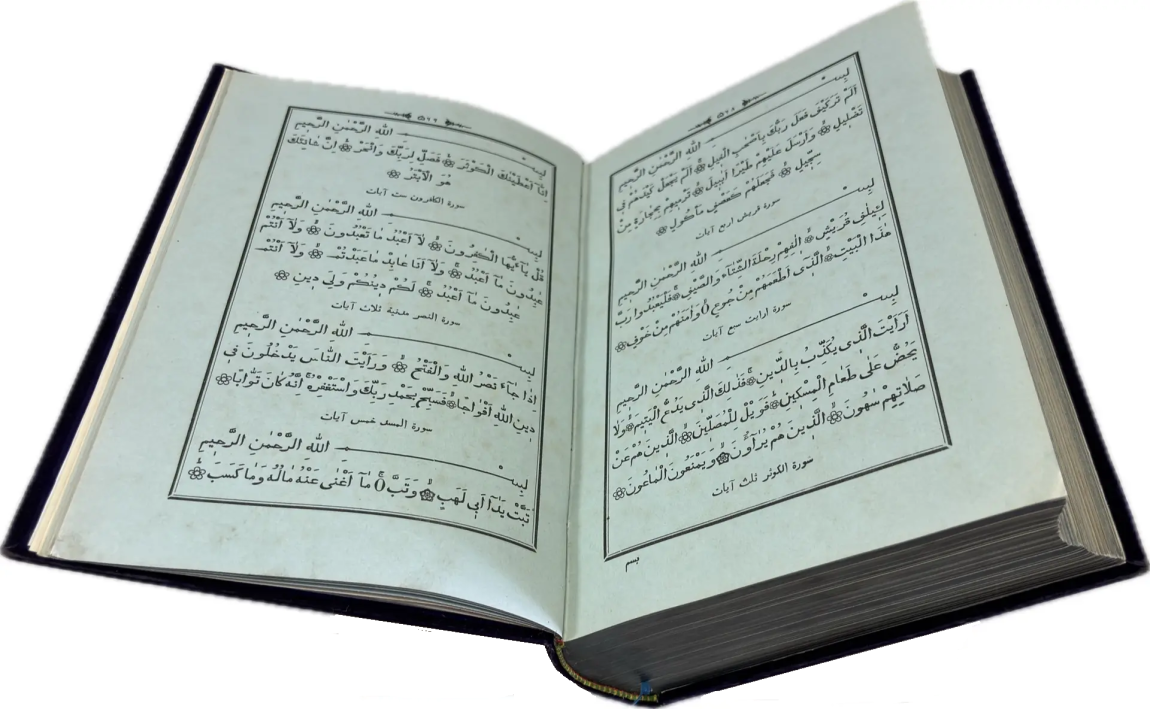 ٥٦٨
بِسْــــمِ اللهِ الرَّحْمٰنِ الرَّحِيمِ
اَلَمْ تَرَ كَيْفَ فَعَلَ رَبُّكَ بِاَصْحٰبِ الْفِيلِ ۞ اَلَمْ يَجْعَلْ كَيْدَهُمْ فِي
تَضْلِيلٍ ۞ وَاَرْسَلَ عَلَيْهِمْ طَيْرًا اَبَابِيلَ ۞ تَرْمِيهِمْ بِحِجَارَةٍ مِنْ
سِجِّيلٍ ۞ فَجَعَلَهُمْ كَعَصْفٍ مَأْكُولٍ ۞
سورة قريش اربع آيات
بِسْــــمِ اللهِ الرَّحْمٰنِ الرَّحِيمِ
لِاِيلٰفِ قُرَيْشٍ ۞ اٖلٰفِهِمْ رِحْلَةَ الشِّتَآءِ وَالصَّيْفِ ۞ فَلْيَعْبُدُوا رَبَّ
هٰذَا الْبَيْتِ ۞ اَلَّذٖٓى اَطْعَمَهُمْ مِنْ جُوعٍ ۝ وَاٰمَنَهُمْ مِنْ خَوْفٍ ۞
سورة ارايت سبع آيات
بِسْــــمِ اللهِ الرَّحْمٰنِ الرَّحِيمِ
اَرَاَيْتَ الَّذٖى يُكَذِّبُ بِالدِّينِ ۞ فَذٰلِكَ الَّذٖى يَدُعُّ الْيَتِيمَ ۞ وَلَا
يَحُضُّ عَلٰى طَعَامِ الْمِسْكِينِ ۞ فَوَيْلٌ لِلْمُصَلِّينَ ۞ اَلَّذِينَ هُمْ عَنْ
صَلَاتِهِمْ سَاهُونَ ۞ اَلَّذِينَ هُمْ يُرَآؤُنَ ۞ وَيَمْنَعُونَ الْمَاعُونَ ۞
سورة الكوثر ثلث آيات
بسم
٥٦٩
بِسْــــمِ اللهِ الرَّحْمٰنِ الرَّحِيمِ
اِنَّٓا اَعْطَيْنٰكَ الْكَوْثَرَ ۞ فَصَلِّ لِرَبِّكَ وَانْحَرْ ۞ اِنَّ شَانِئَكَ
هُوَ الْاَبْتَرُ ۞
سورة الكافرون ست آيات
بِسْــــمِ اللهِ الرَّحْمٰنِ الرَّحِيمِ
قُلْ يَٓا اَيُّهَا الْكٰفِرُونَ ۞ لَٓا اَعْبُدُ مَا تَعْبُدُونَ ۞ وَلَٓا اَنْتُمْ
عٰبِدُونَ مَٓا اَعْبُدُ ۞ وَلَٓا اَنَا عَابِدٌ مَا عَبَدْتُمْ ۞ وَلَٓا اَنْتُمْ
عٰبِدُونَ مَٓا اَعْبُدُ ۞ لَكُمْ دِينُكُمْ وَلِيَ دِينِ ۞
سورة النصر مدنية ثلاث آيات
بِسْــــمِ اللهِ الرَّحْمٰنِ الرَّحِيمِ
اِذَا جَآءَ نَصْرُ اللهِ وَالْفَتْحُ ۞ وَرَاَيْتَ النَّاسَ يَدْخُلُونَ فٖى
دِينِ اللهِ اَفْوَاجًا ۞ فَسَبِّحْ بِحَمْدِ رَبِّكَ وَاسْتَغْفِرْهُ اِنَّهُ كَانَ تَوَّابًا ۞
سورة المسد خمس آيات
بِسْــــمِ اللهِ الرَّحْمٰنِ الرَّحِيمِ
تَبَّتْ يَدَٓا اَبٖى لَهَبٍ وَتَبَّ ۝ مَٓا اَغْنٰى عَنْهُ مَالُهُ وَمَا كَسَبَ ۞